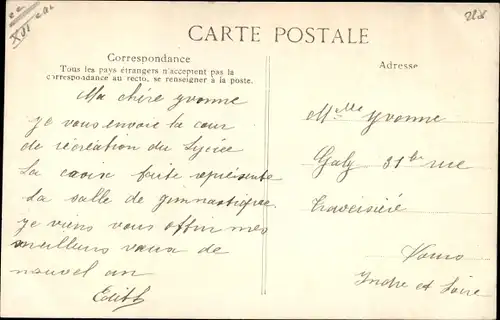 CARTE POSTALE
Correspondance
Tous les pays étrangers n'acceptent pas la
correspondance au recto, se renseigner à la poste.
Adresse
Ma chére Yvonne
je vous envoie la cour
de récréation du Lycée
La croix faite représente
La salle de gimnastique
je viens vous offrir mes
meilleurs vœux de
nouvel an
Edith
Mlle Yvonne
Galy 31 bis rue
Traversière
Tours
Indre et Loire